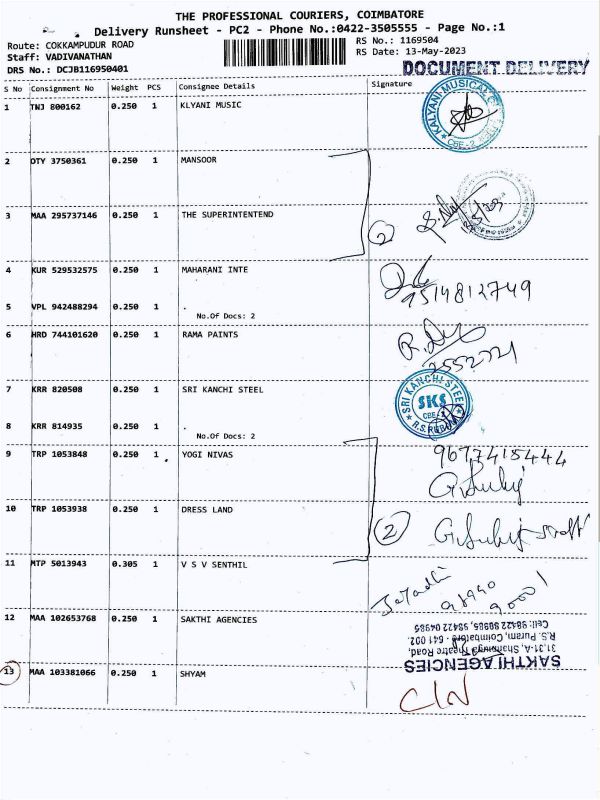 THE PROFESSIONAL COURIERS, COIMBATORE
Delivery Runsheet - PC2 - Phone No.:0422-3505555 - Page No.:1
Route: COKKAMPUDUR ROAD
RS No.: 1169504
Staff: VADIVANATHAN
RS Date: 13-May-2023
DRS No.: DCJB116950401
DOCUMENT DELIVERY
S No Consignment No Weight PCS Consignee Details Signature
1 TNJ 800162 0.250 1 KLYANI MUSIC
KALYANI MUSICAL
CBE-2
2 OTY 3750361 0.250 1 MANSOOR
3 MAA 295737146 0.250 1 THE SUPERINTENTEND
2
4 KUR 529532575 0.250 1 MAHARANI INTE
9514812749
5 VPL 942488294 0.250 1 .
No.Of Docs: 2
6 HRD 744101620 0.250 1 RAMA PAINTS
2552721
7 KRR 820508 0.250 1 SRI KANCHI STEEL
SRI KANCHI STEEL
SKS
CBE-2
8 KRR 814935 0.250 1 .
No.Of Docs: 2
9 TRP 1053848 0.250 1 YOGI NIVAS
9677415444
10 TRP 1053938 0.250 1 DRESS LAND
2
11 MTP 5013943 0.305 1 V S V SENTHIL
98940
90001
12 MAA 102653768 0.250 1 SAKTHI AGENCIES
SAKTHI AGENCIES
31.31-A, Shanmuga Theatre Road,
R.S. Puram, Coimbatore - 641 002.
Cell: 98422 80985, 98422 04985
13 MAA 103381066 0.250 1 SHYAM
CIN